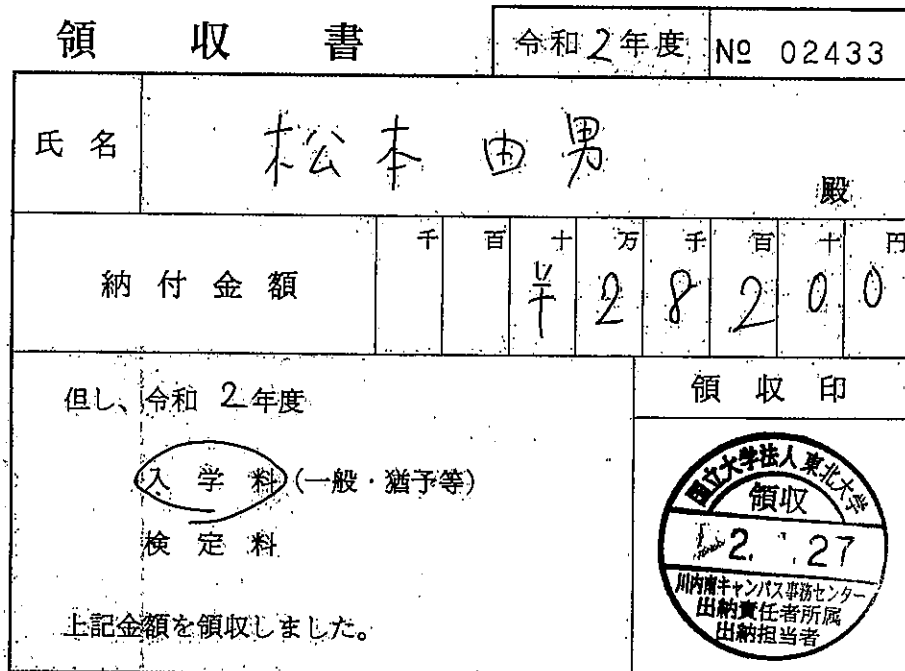 領収書
令和2年度 № 02433
氏名 松本由男 殿
千 百 十 万 千 百 十 円
納付金額 ¥ 2 8 2 0 0
但し、令和 2年度
領収印
入学料(一般・猶予等)
検定料
上記金額を領収しました。
国立大学法人東北大学
領収
2. 27
川内南キャンパス事務センター
出納責任者所属
出納担当者